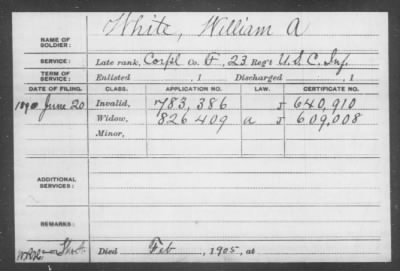 NAME OF SOLDIER: White, William A
SERVICE: Late rank, Corp'l Co. F, 23 Reg't U.S.C. Inf.
TERM OF SERVICE: Enlisted , 1 Discharged , 1
DATE OF FILING. CLASS. APPLICATION NO. LAW. CERTIFICATE NO.
1890 June 20 Invalid, 783,386 J 640,910
Widow, 826 409 a J 609,008
Minor,
ADDITIONAL SERVICES:
REMARKS:
Died Feb , 1905, at